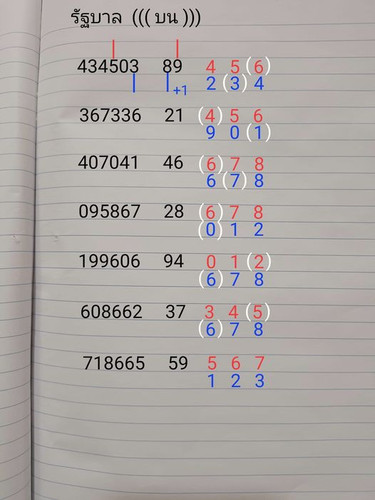 รัฐบาล ((( บน )))
434503 89 4 5 (6)
+1 2 (3) 4
367336 21 (4) 5 6
9 0 (1)
407041 46 (6) 7 8
6 (7) 8
095867 28 (6) 7 8
(0) 1 2
199606 94 0 1 (2)
(6) 7 8
608662 37 3 4 (5)
(6) 7 8
718665 59 5 6 7
1 2 3